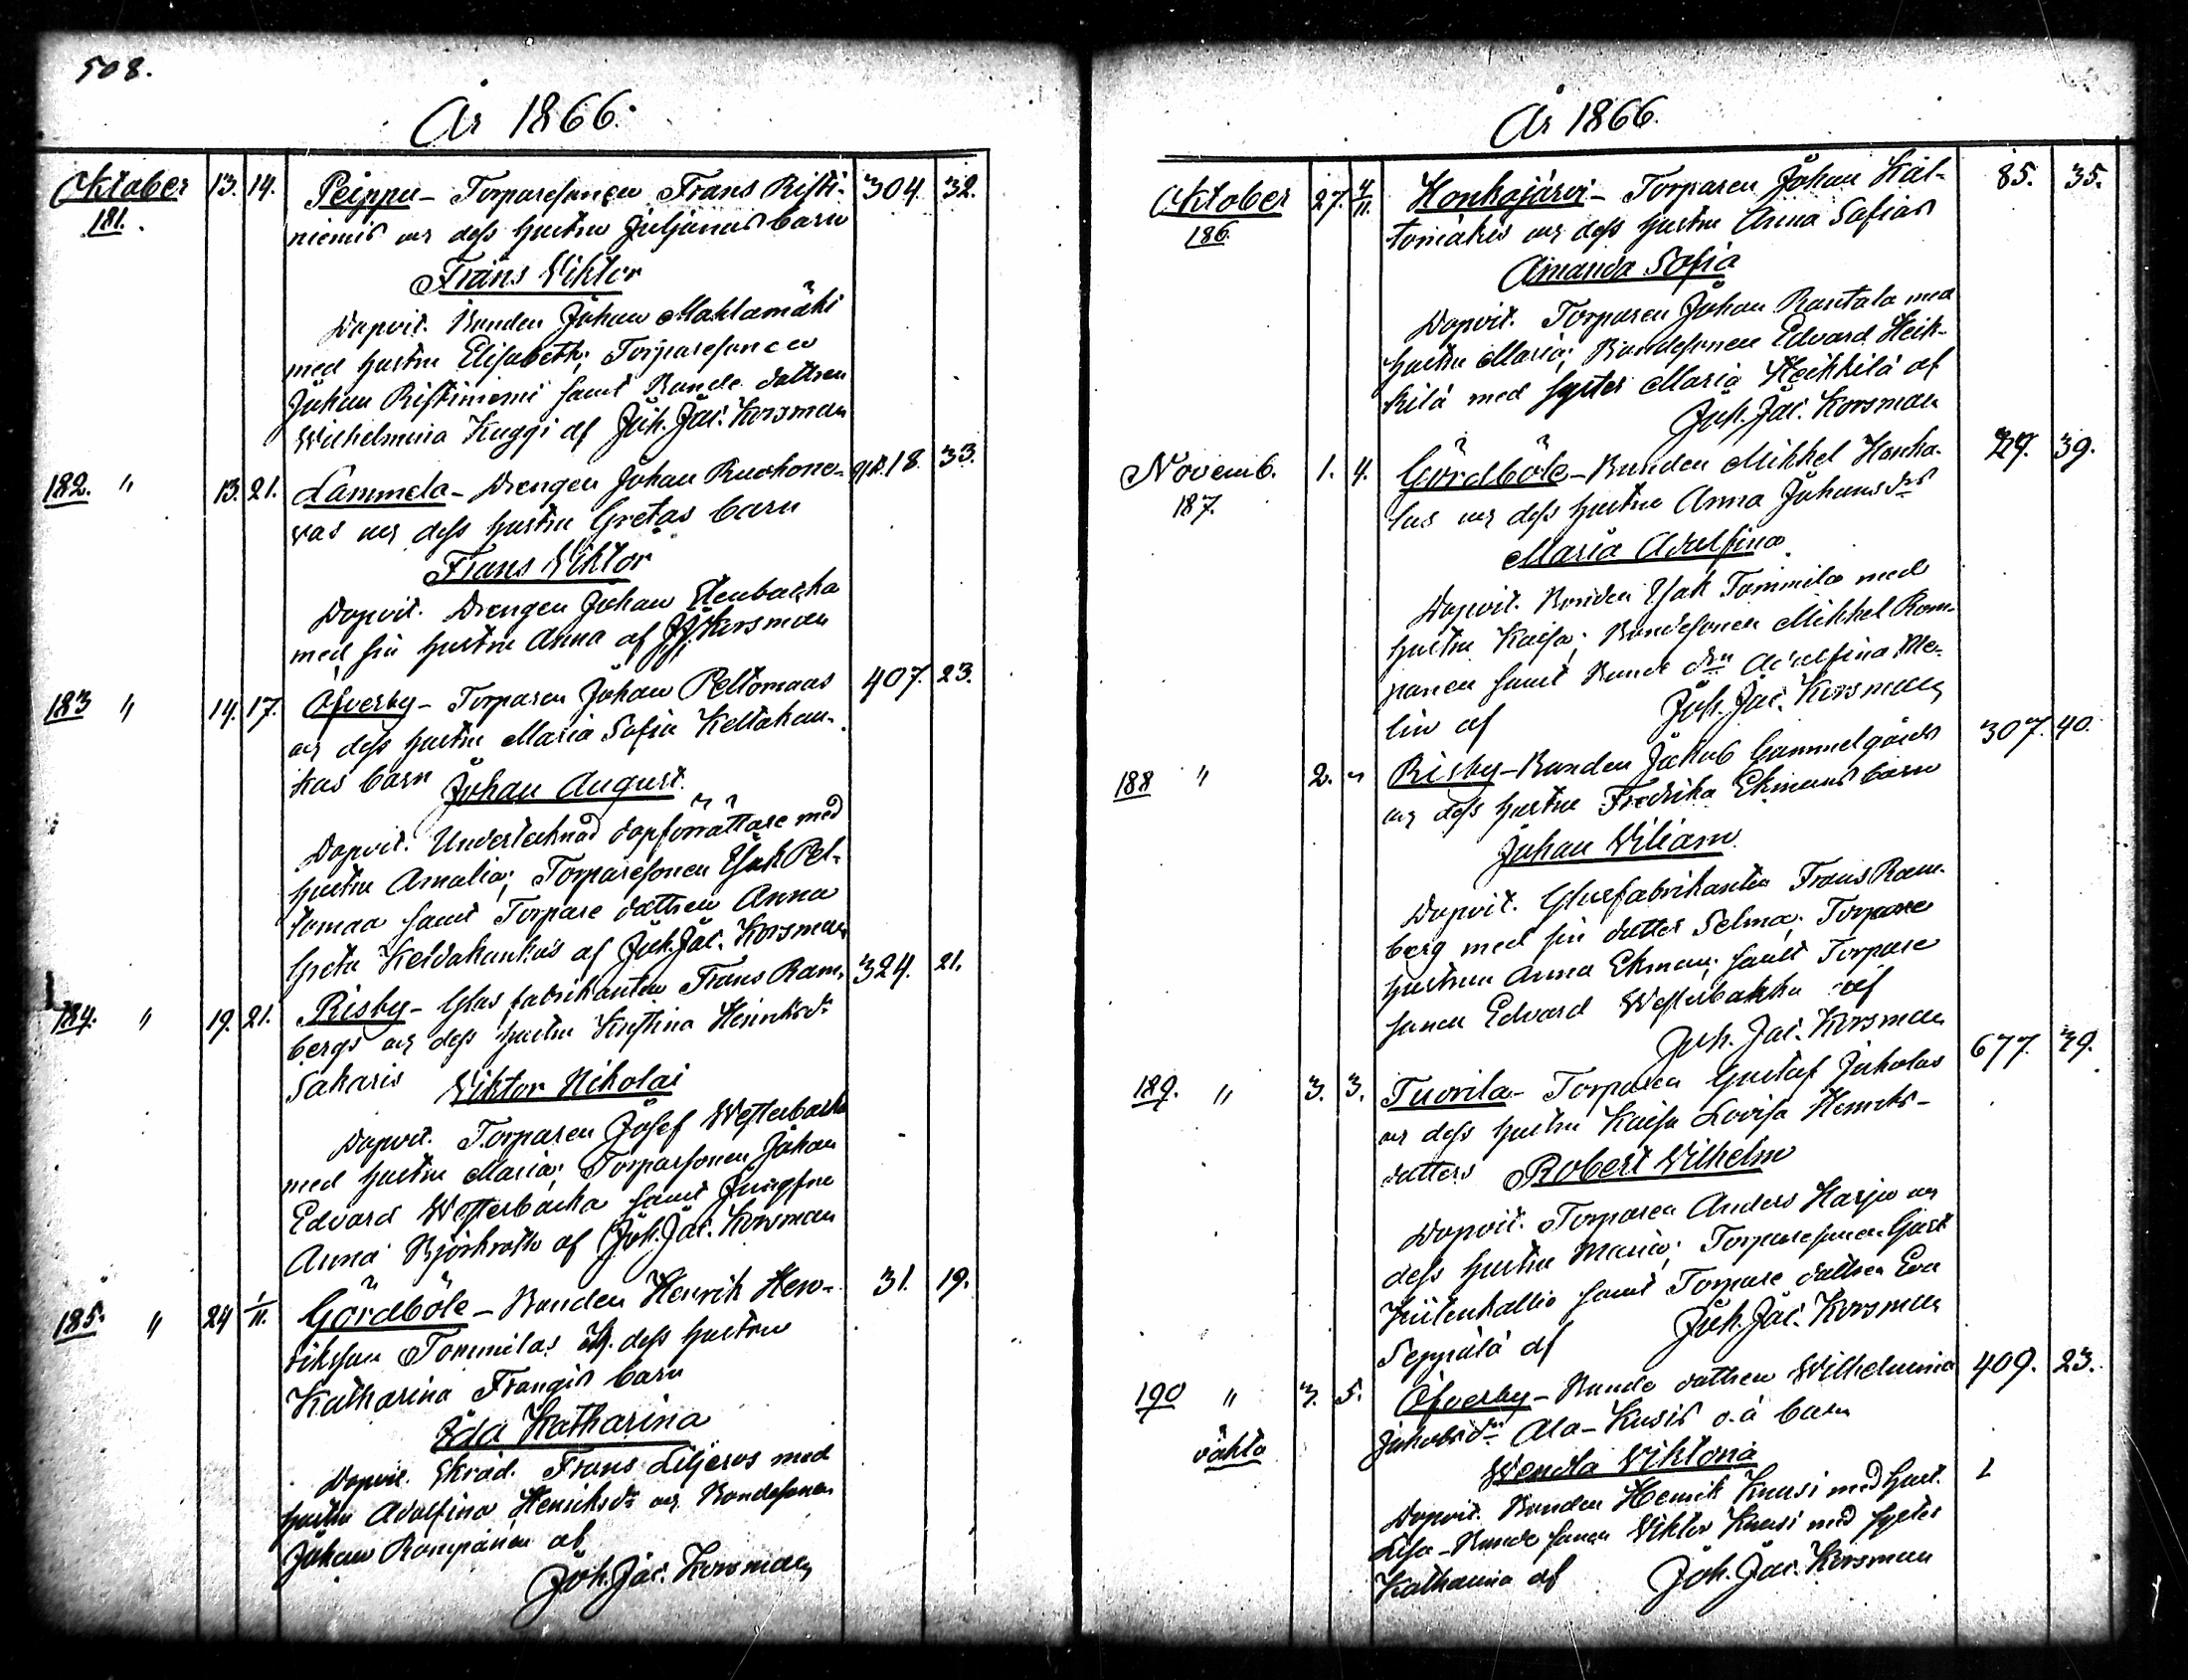 508.
År 1866.
Oktober 13. 14. Peippu - Torparesonen Frans Risti- 304. 32.
181. niemis och dess hustru Juljanas barn
Frans Viktor
Dopvit. Bonden Johan Mahlamäki
med hustru Elisabeth; Torparesonen
Johan Ristiniemi samt Bonde dottren
Wilhelmina Kuggi af Joh. Jac. Korsman
182. " 13. 21. Lammela - Drengen Johan Ruohone- 18. 33.
vas och dess hustru Gretas barn
Frans Viktor
Dopvit. Drengen Johan Stenbacka
med sin hustru Anna af J. J. Korsman
183 " 14. 17. Öfverby - Torparen Johan Peltomaas 407. 23.
och dess hustru Maria Sofia Keltakan-
kas barn Johan August.
Dopvit. Undertecknad dopförrättare med
hustru Amalia; Torparesonen Isak Pel-
tomaa samt Torpare dottren Anna
Greta Keldakankas af Joh. Jac. Korsman
184. " 19. 21. Risby - Glasfabrikanten Frans Ram- 324. 21.
bergs och dess hustru Kristina Henriksdr
Saharis Viktor Nikolai
Dopvit. Torparen Josef Westerbacka
med hustru Maria; Torparsonen Johan
Edvard Westerbacka samt Jungfru
Anna Björkroth af Joh. Jac. Korsman
185. " 24 1/11. Gördböle - Bonden Henrik Hen- 31. 19.
riksson Tommilas och dess hustru
Katharina Frangis barn
Ida Katharina
Dopvit. Skräd. Frans Liljeros med
hustru Adolfina Henriksdr och Bondesonen
Johan Rompanen af
Joh. Jac. Korsman
År 1866.
Oktober 27. 4/11. Honkajärvi - Torparen Johan Kal- 85. 35.
186. tomäkis och dess hustru Anna Sofias
Amanda Sofia
Dopvit. Torparen Johan Rantala med
hustru Maria; Bondesonen Edvard Heik-
kilä med syster Maria Heikkilä af
Joh. Jac. Korsman
Novemb. 1. 4. Gördböle - Bonden Mikkel Honka- 39.
187. las och dess hustru Anna Johansdrs
Maria Adolfina
Dopvit. Bonden Isak Tommila med
hustru Kaisa; Bondesonen Mikkel Rom-
panen samt Bonde drn Adolfina Me-
lin af Joh. Jac. Korsman
188 " 2. " Risby - Bonden Jakob Gammelgårds 307. 40.
och dess hustru Fredrika Ekmans barn
Johan Viliam
Dopvit. Glasfabrikanten Frans Ram-
berg med sin dotter Selma; Torpare
hustrun Anna Ekman; samt Torpare
sonen Edvard Westerbacka af
Joh. Jac. Korsman
189. " 3. 3. Tuorila - Torparen Gustaf Jakolas 677. 29.
och dess hustru Kaisa Lovisa Henriks-
dotters Robert Vilhelm
Dopvit. Torparen Anders Harju och
dess hustru Maria; Torparesonen Gust
Hiitenkallio samt Torpare dottren Eva
Seppälä af Joh. Jac. Korsman
190 " 3. 5. Öfverby - Bonde dottren Wilhelmina 409. 23.
oäkta Jakobsdr Ala-Kusis o.ä barn
Wendla Viktoria
Dopvit. Bonden Henrik Kuusi med hust.
Lisa - Bonde sonen Viktor Kuusi med syster
Katharina af Joh. Jac. Korsman